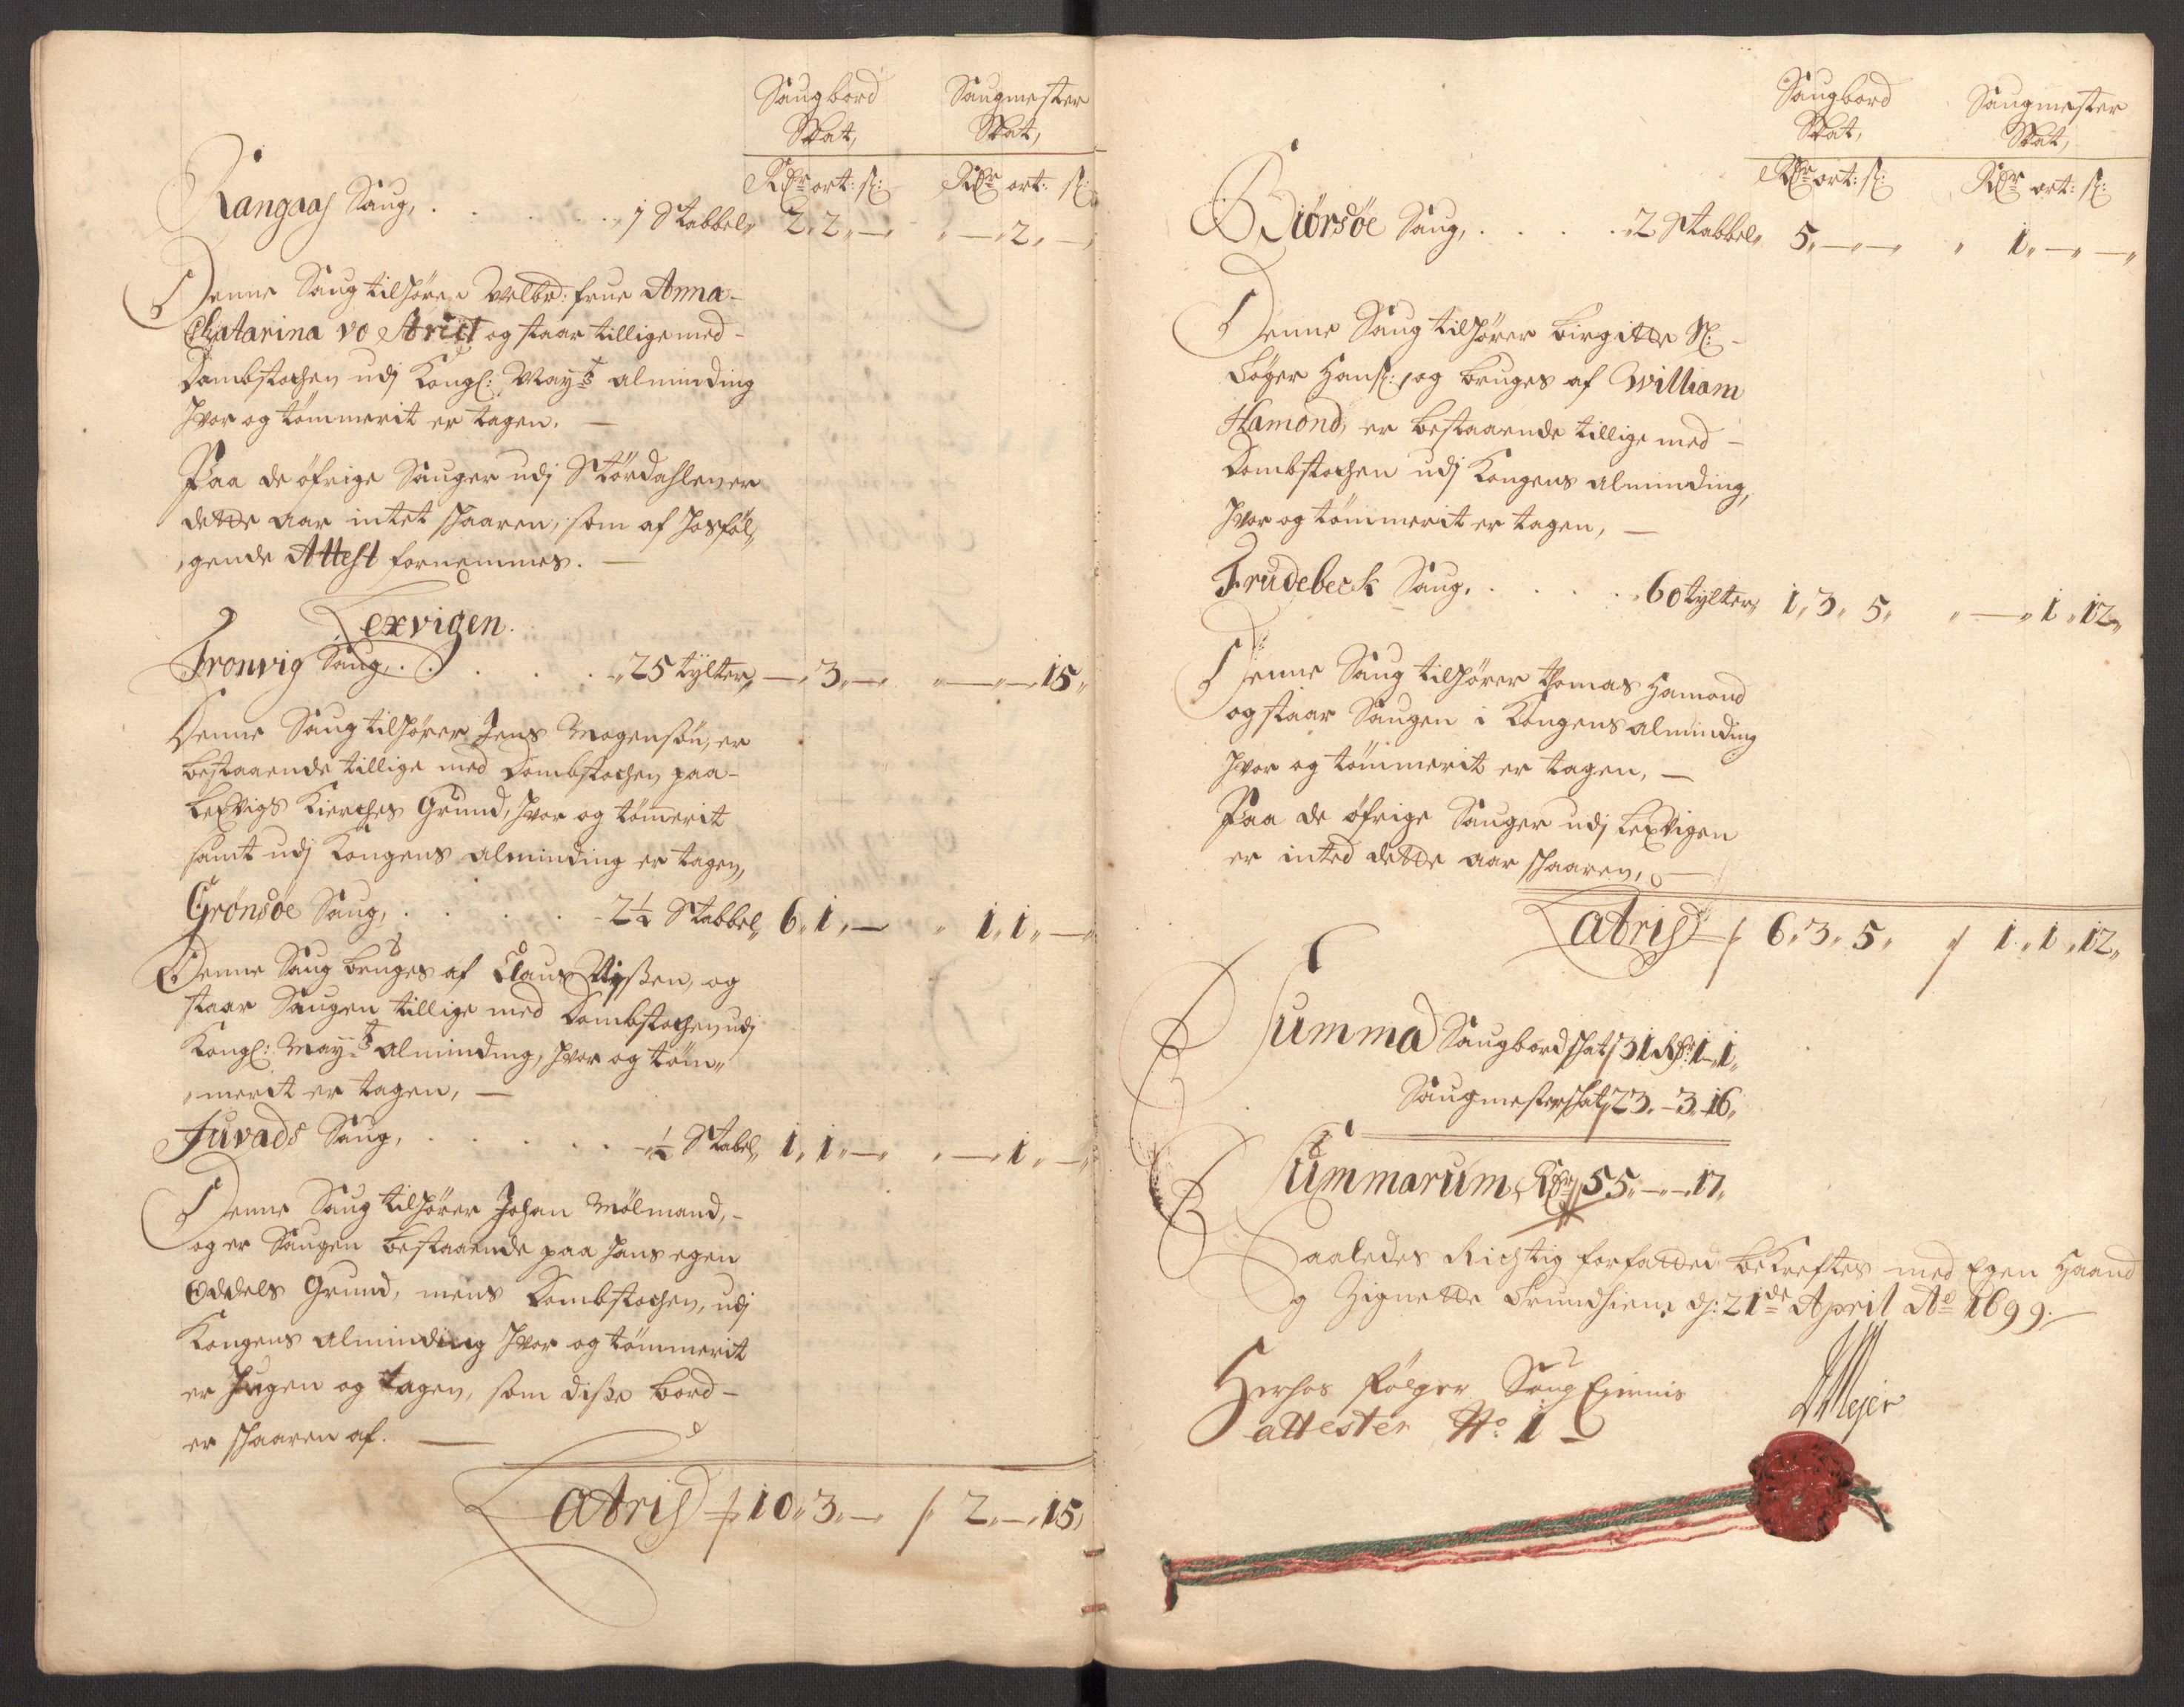 Saugbord Saugmester
Skat, Skat,
Rdr ort: s: Rdr ort: s:
Rangaas Saug, . . . . . 1 Stabbel, 2, 2, — — 2, —
Denne Saug tilhører Velbr: frue Anna
Chatarina vo Strict og staar tillige med
Dambstochen udj Kongl: Mayts alminding
hvor og tømmerit er tagen. —
Paa de øfrige Sauger udj Størdahlen er
dette aar intet skaaren, som af hosføl,,
,,gende Attest fornemmes. —
Lexvigen.
Tronvig Saug, . . . . 25 tylter, — 3, — — — 15,
Denne Saug tilhører Jens Mogensøn, er
bestaaende tillige med Dombstochen paa
Lexvigs Kierches Grund, hvor og tømerit
samt udj Kongens alminding er tagen,
Grønsøe Saug, . . . . 2½ Stabbel, 6, 1, — 1, 1, —
Denne Saug bruges af Claus Nyssen, og
staar Saugen tillige med Dombstochen udj
Kongl: Mayts alminding, hvor og tøm,,
,,merit er tagen, —
Juvads Saug, . . . . . ½ Stabel, 1, 1, — — 1, —
Denne Saug tilhører Johan Mølmand,
og er Saugen bestaaende paa hans egen
Oddels Grund, mens Dombstochen, udj
Kongens alminding hvor og tømmerit
er hugen og tagen, som disse bord
er skaaren af. —
Latris 10, 3, — 2, — 15,
Saugbord Saugmester
Skat, Skat,
Rdr ort: s: Rdr ort: s:
Biørsøe Saug, . . . . 2 Stabbel, 5, — — 1, — —
Denne Saug tilhører Birgitte Sl:
Søger Hans: og bruges af William
Hamond, er bestaaende tillige med
Dombstochen udj Kongens alminding,
hvor og tømmerit er tagen, —
Trudebeck Saug, . . . . 60 tylter, 1, 3, 5, — 1, 12,
Denne Saug tilhører Thomas Hamond
og staar Saugen i Kongens alminding
hvor og tømmerit er tagen, —
Paa de øfrige Sauger udj Lexvigen
er inted dette aar skaaren, —
Latris 6, 3, 5, 1, 1, 12,
Summa Saugbordskat 31 Rdr 1, 1,
Saugmesterskat, 23, 3, 16,
Summarum Rdr 55, — 17,
Saaledes Richtig forfatted bekreftes med Egen Haand
og Zignette Trundhiem d: 21de April Ao 1699.
Herhos følger Saug
attester No 1
Mejer